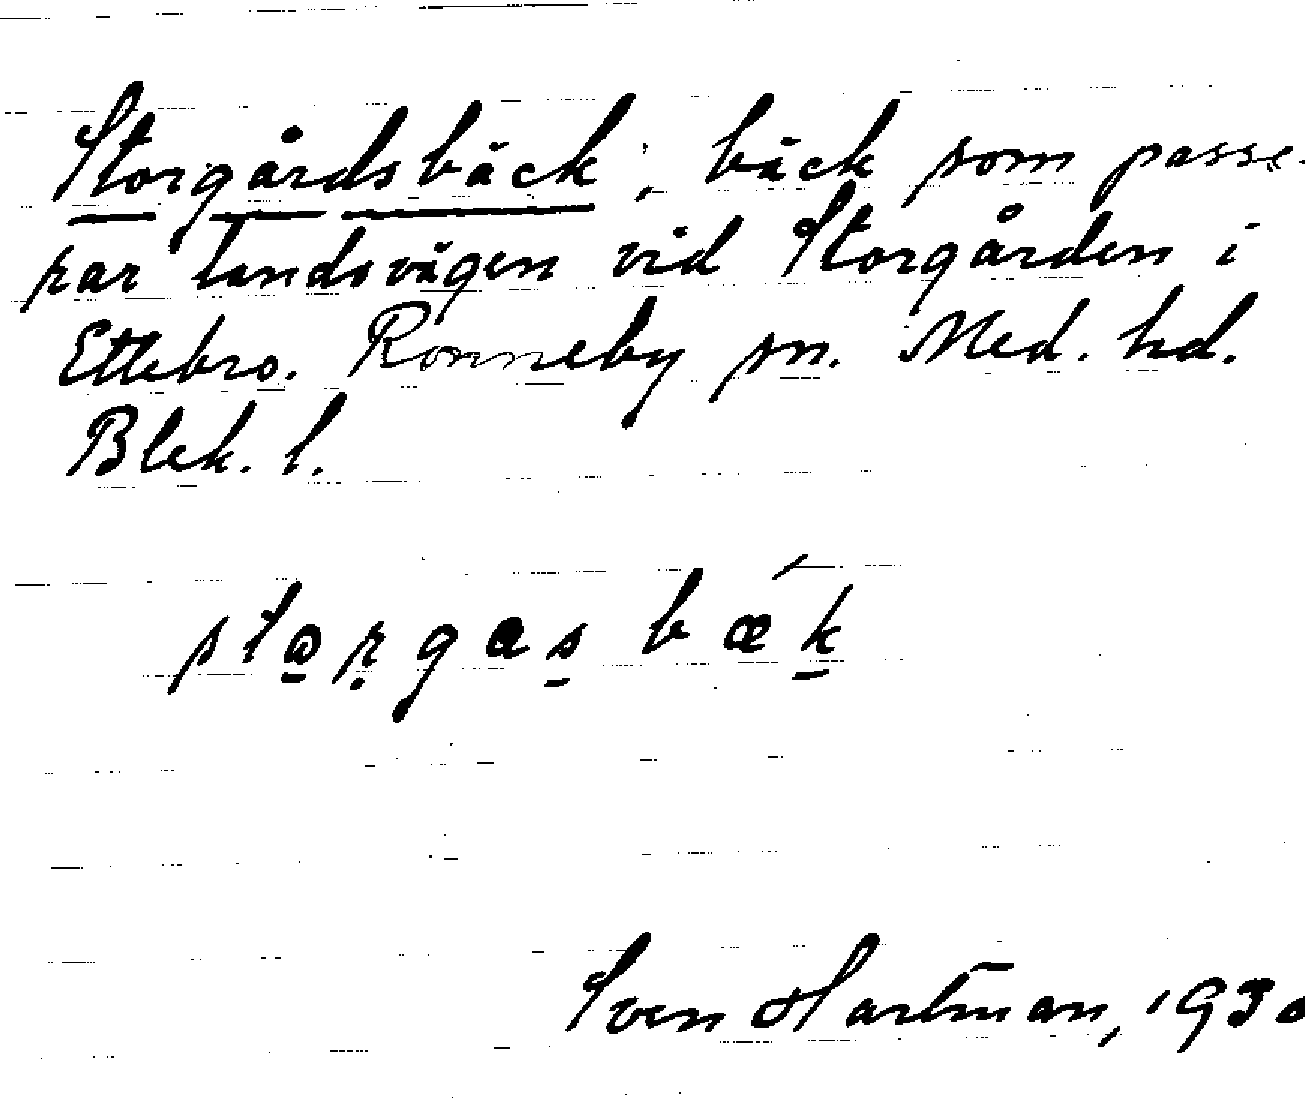 Storgårdsbäck; bäck som passe-
rar landsvägen vid Storgården i
Ettebro. Ronneby sn. Med. hd.
Blek. l.
Sven Hartman, 1930